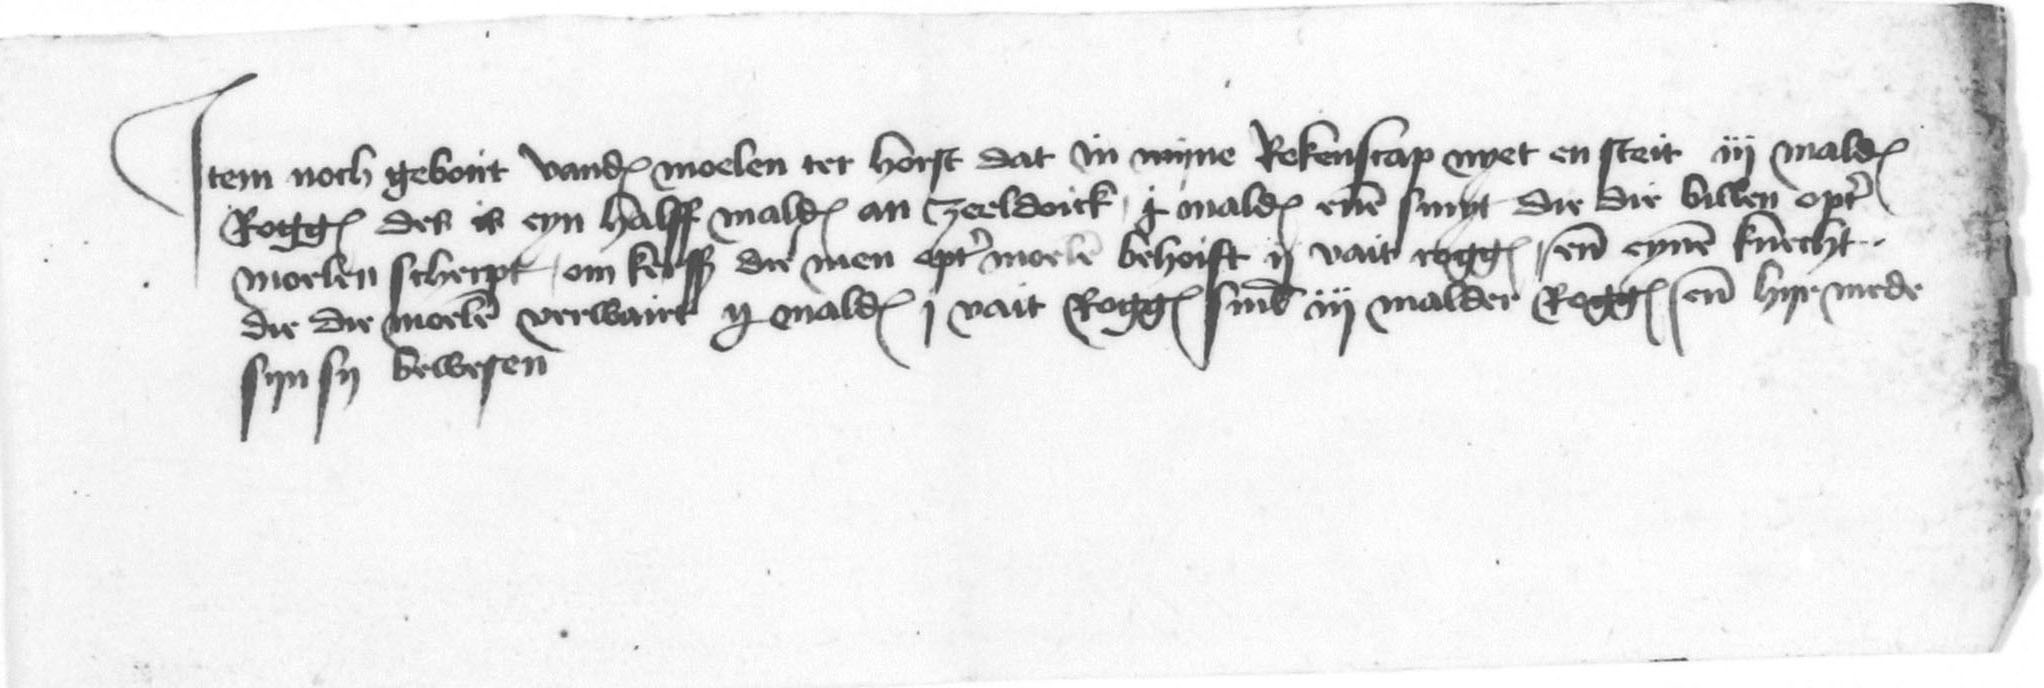 Item noch gebort vand moelen ter horst dat in mijne Rekenscap nyet en steit iij mald
Rogg des is eyn halff mald an zeeldoick j mald enē smyt die die billen opt
moelen scherpt om kerss die men opt moelē behoift ij vait rogg en̄ eynē knecht
die die moelē verwairt ij mald j vait Rogg sm̄ iij malder Rogg en̄ hyr mede
sijn sij bewesen